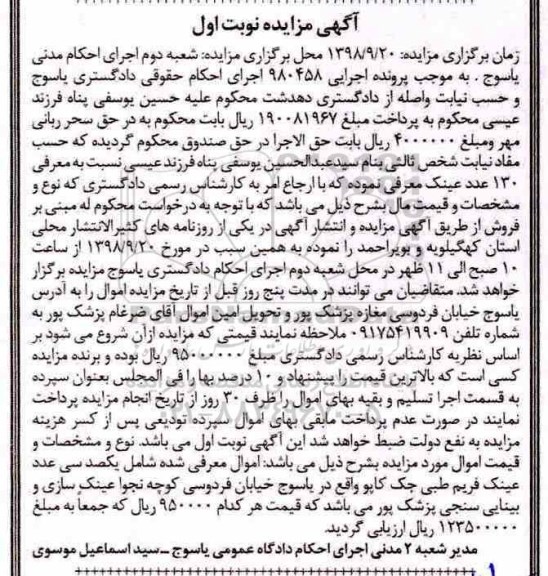 آگهی مزایده نوبت اول
زمان برگزاری مزایده: ۱۳۹۸/۹/۲۰ محل برگزاری مزایده: شعبه دوم اجرای احکام مدنی
یاسوج . به موجب پرونده اجرایی ۹۸۰۴۵۸ اجرای احکام حقوقی دادگستری یاسوج
و حسب نیابت واصله از دادگستری دهدشت محکوم علیه حسین یوسفی پناه فرزند
عیسی محکوم به پرداخت مبلغ ۱۹۰۰۸۱۹۶۷ ریال بابت محکوم به در حق سحر ربانی
مهر ومبلغ ۴۰۰۰۰۰۰ ریال بابت حق الاجرا در حق صندوق محکوم گردیده که حسب
مفاد نیابت شخص ثالثی بنام سیدعبدالحسین یوسفی پناه فرزند عیسی نسبت به معرفی
۱۳۰ عدد عینک معرفی نموده که با ارجاع امر به کارشناس رسمی دادگستری که نوع و
مشخصات و قیمت مال بشرح ذیل می باشد که با توجه به درخواست محکوم له مبنی بر
فروش از طریق آگهی مزایده و انتشار آگهی در یکی از روزنامه های کثیرالانتشار محلی
استان کهگیلویه و بویراحمد را نموده به همین سبب در مورخ ۱۳۹۸/۹/۲۰ از ساعت
۱۰ صبح الی ۱۱ ظهر در محل شعبه دوم اجرای احکام دادگستری یاسوج مزایده برگزار
خواهد شد. متقاضیان می توانند در مدت پنج روز قبل از تاریخ مزایده اموال را به آدرس
یاسوج خیابان فردوسی مغازه پزشک پور و تحویل امین اموال آقای ضرغام پزشک پور به
شماره تلفن ۰۹۱۷۵۴۱۹۹۰۹ ملاحظه نمایند قیمتی که مزایده ازآن شروع می شود بر
اساس نظریه کارشناس رسمی دادگستری مبلغ ۹۵۰۰۰۰۰۰ ریال بوده و برنده مزایده
کسی است که بالاترین قیمت را پیشنهاد و ۱۰ درصد بها را فی المجلس بعنوان سپرده
به قسمت اجرا تسلیم و بقیه بهای اموال را ظرف ۳۰ روز از تاریخ انجام مزایده پرداخت
نمایند در صورت عدم پرداخت مابقی بهای اموال سپرده تودیعی پس از کسر هزینه
مزایده به نفع دولت ضبط خواهد شد این آگهی نوبت اول می باشد. نوع و مشخصات و
قیمت اموال مورد مزایده بشرح ذیل می باشد: اموال معرفی شده شامل یکصد سی عدد
عینک فریم طبی جک کاپو واقع در یاسوج خیابان فردوسی کوچه نجوا عینک سازی و
بینایی سنجی پزشک پور می باشد که قیمت هر کدام ۹۵۰۰۰۰ ریال که جمعاً به مبلغ
۱۲۳۵۰۰۰۰۰ ریال ارزیابی گردید.
مدیر شعبه ۲ مدنی اجرای احکام دادگاه عمومی یاسوج – سید اسماعیل موسوی